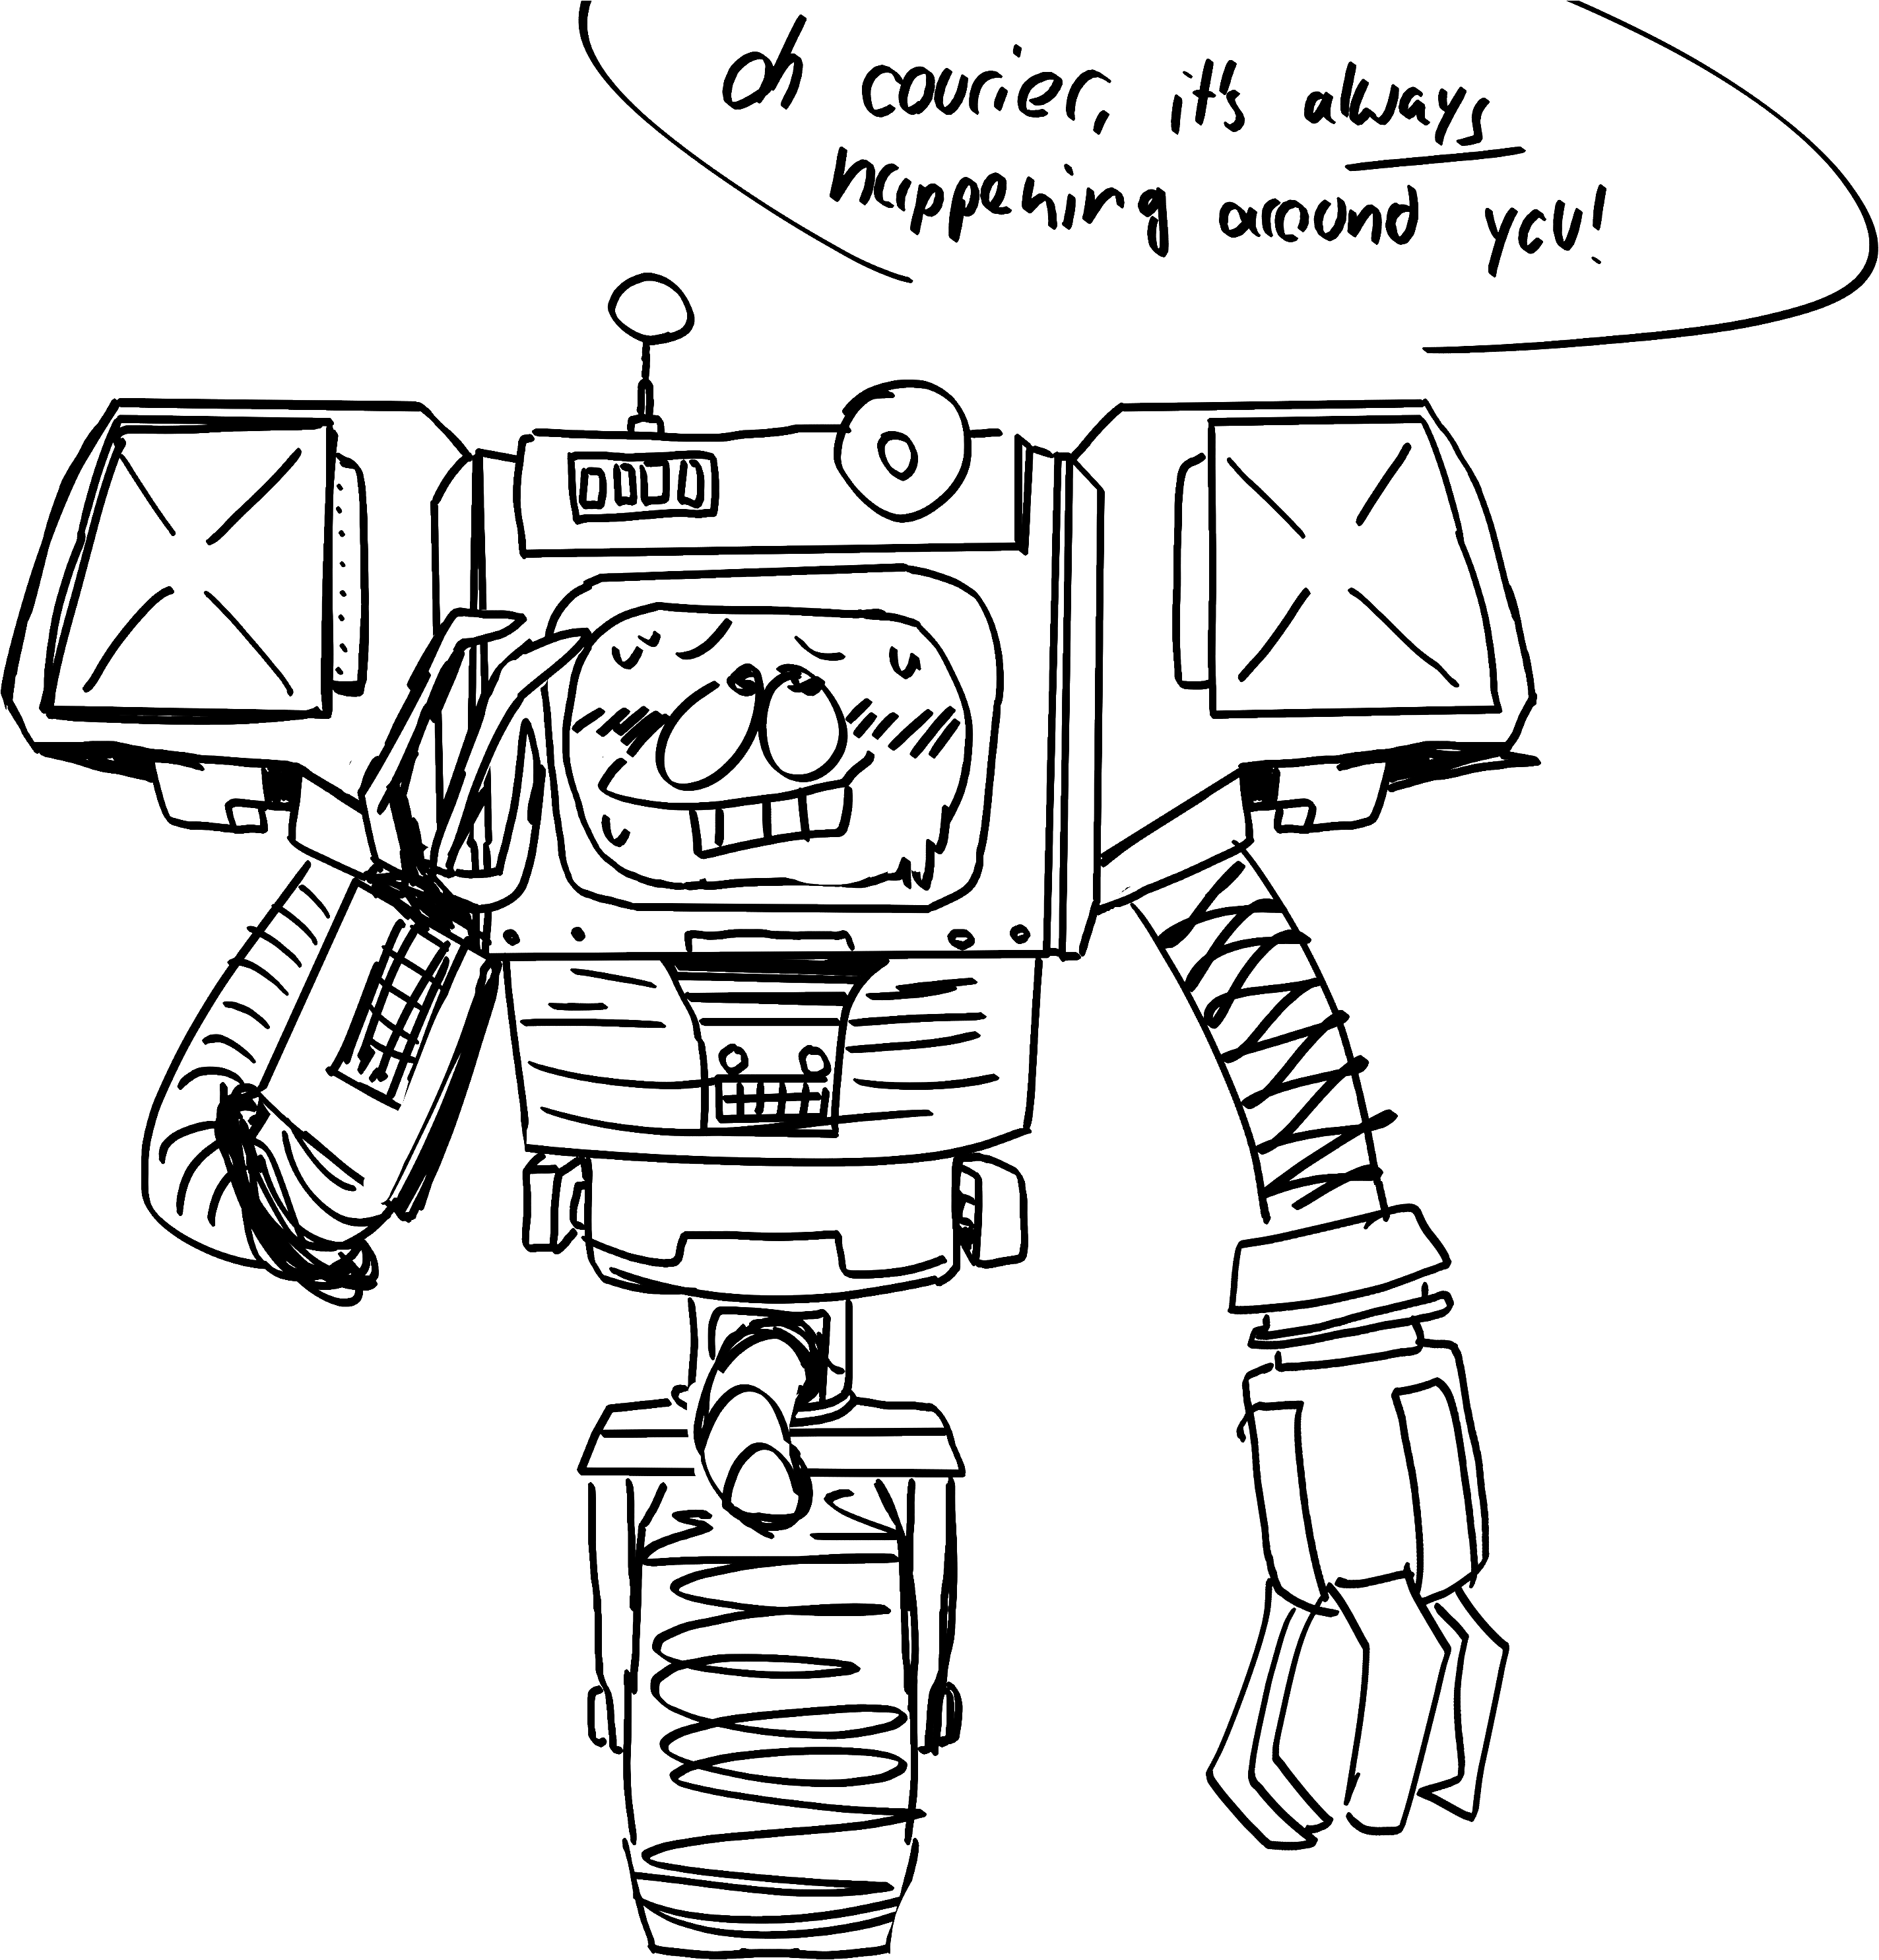 oh courier, it's always
happening around you!